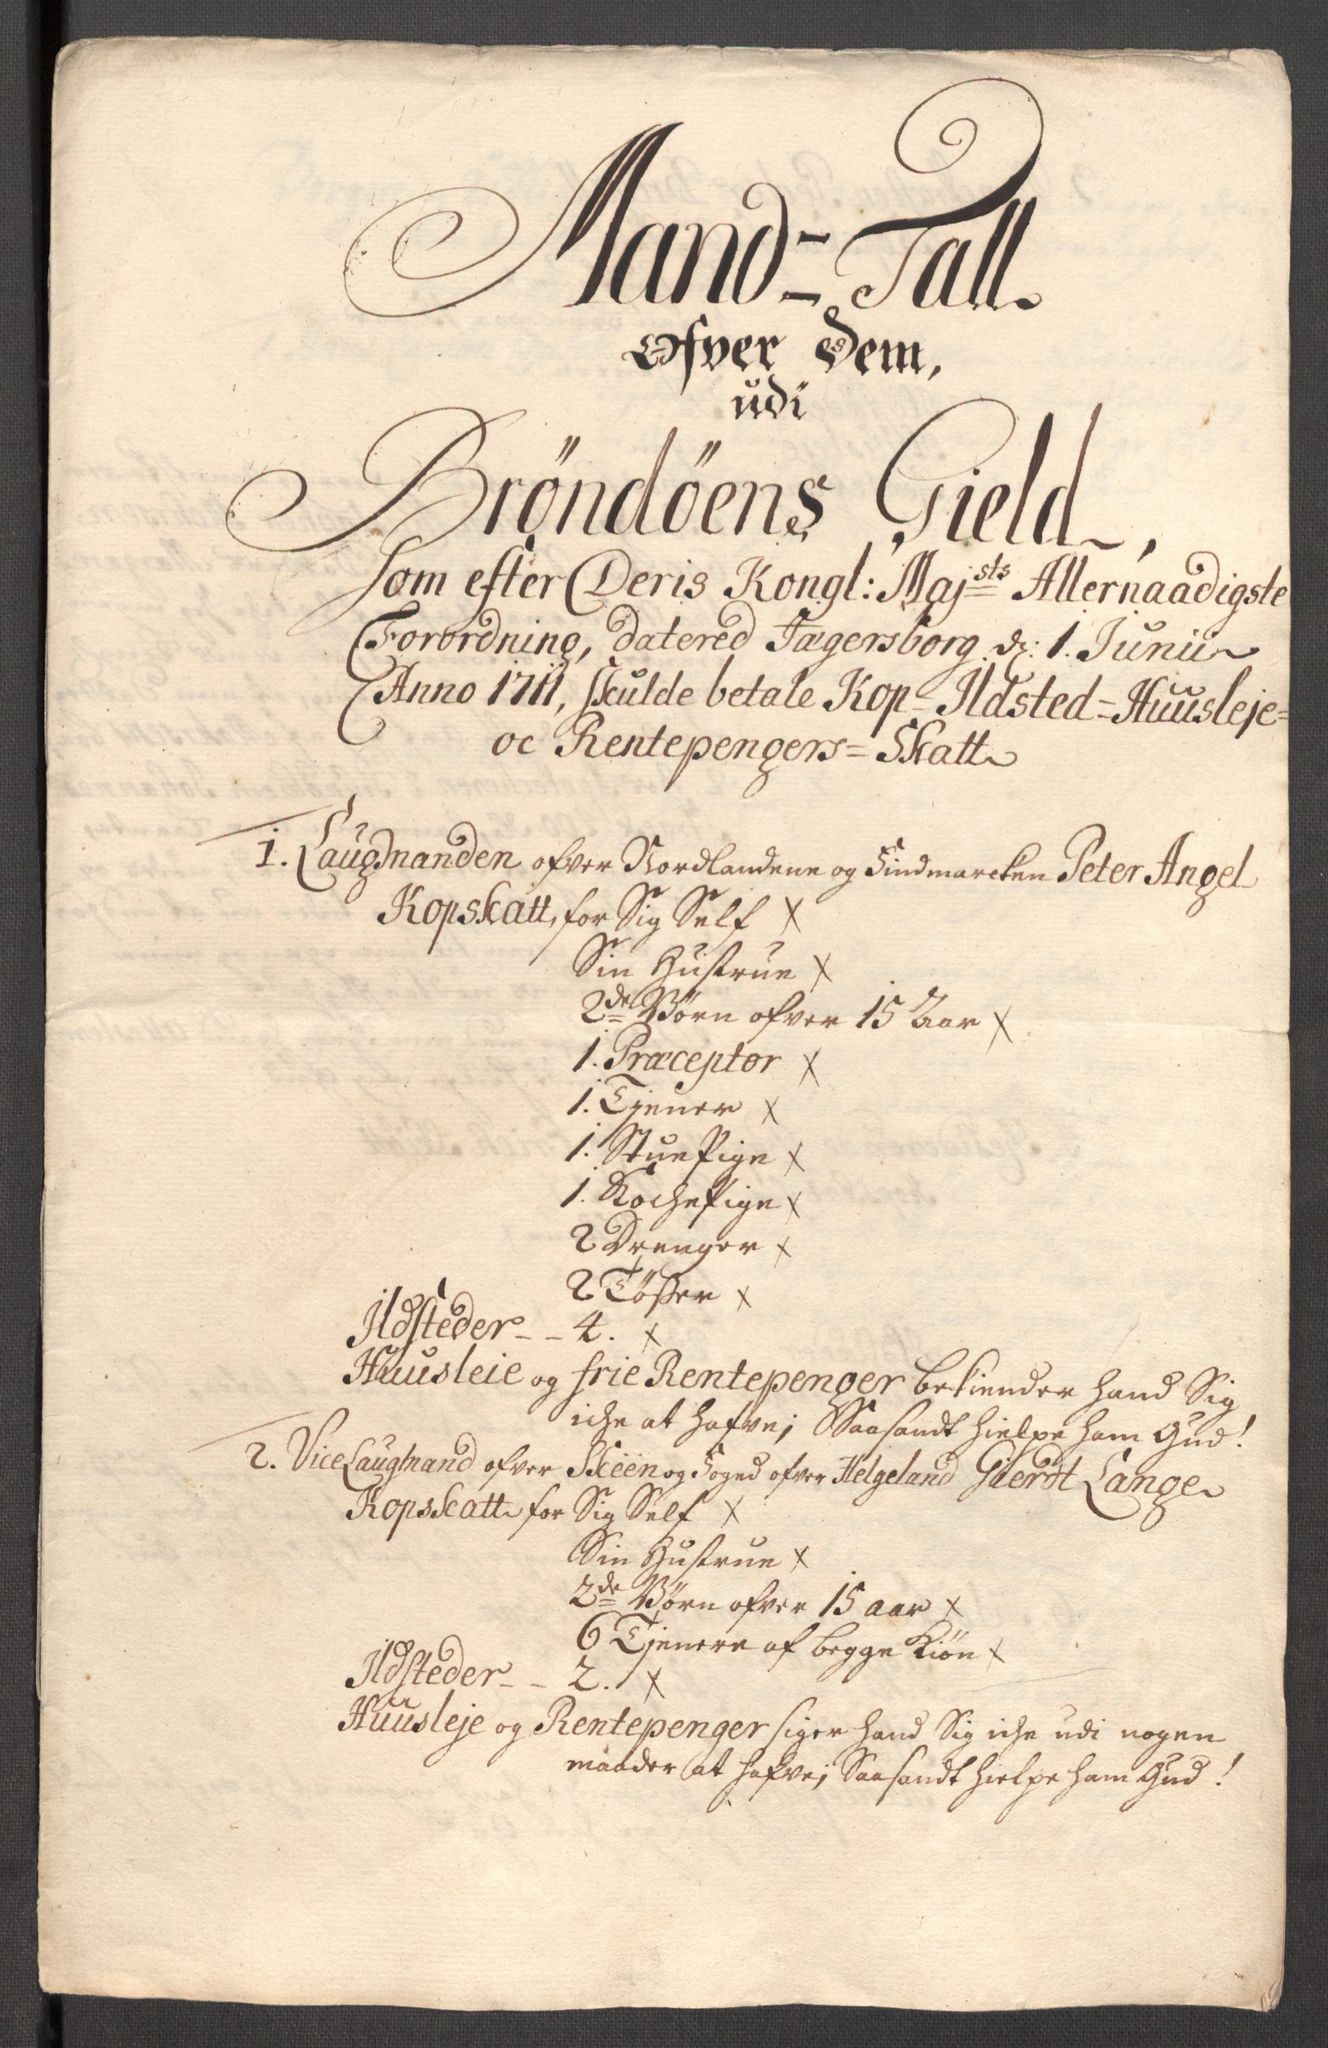 Mand-Tall
Ofver Dem,
udi
Bröndöens Gield,
som efter Deris Kongl: Majsts Allernaadigste
Forordning, datered Jægersborg d: 1. Junii
Anno 1711, skulde betale Kop- Ildsted-Huusleje-
oc Rentepengers-Skatt
1. Laugmanden ofver Nordlandene og Findmarcken Peter Angel
Kopskatt, for Sig Self x
Sin Hustrue x
2de Børn ofver 15 Aar x
1. Præceptor x
1. Tjener x
1. StuePige x
1. KochePige x
2 Drenger x
2 Tösser x
Ildsteder - - 4. x
Huusleie og frie Rentepenger bekiender hand Sig
iche at hafve; Saasandt hielpe ham Gud!
2. Vice Laugmand ofver Skeen og Foged ofver Helgeland Gierdt Lange
Kopskatt for Sig Self x
Sin Hustrue x
2de Børn ofver 15 aar x
6 Tjenere af begge Kiön x
Ildsteder - - 2. x
Huusleje og Rentepenger siger hand Sig iche udi nogen
maader at hafve; Saasandt hielpe ham Gud!